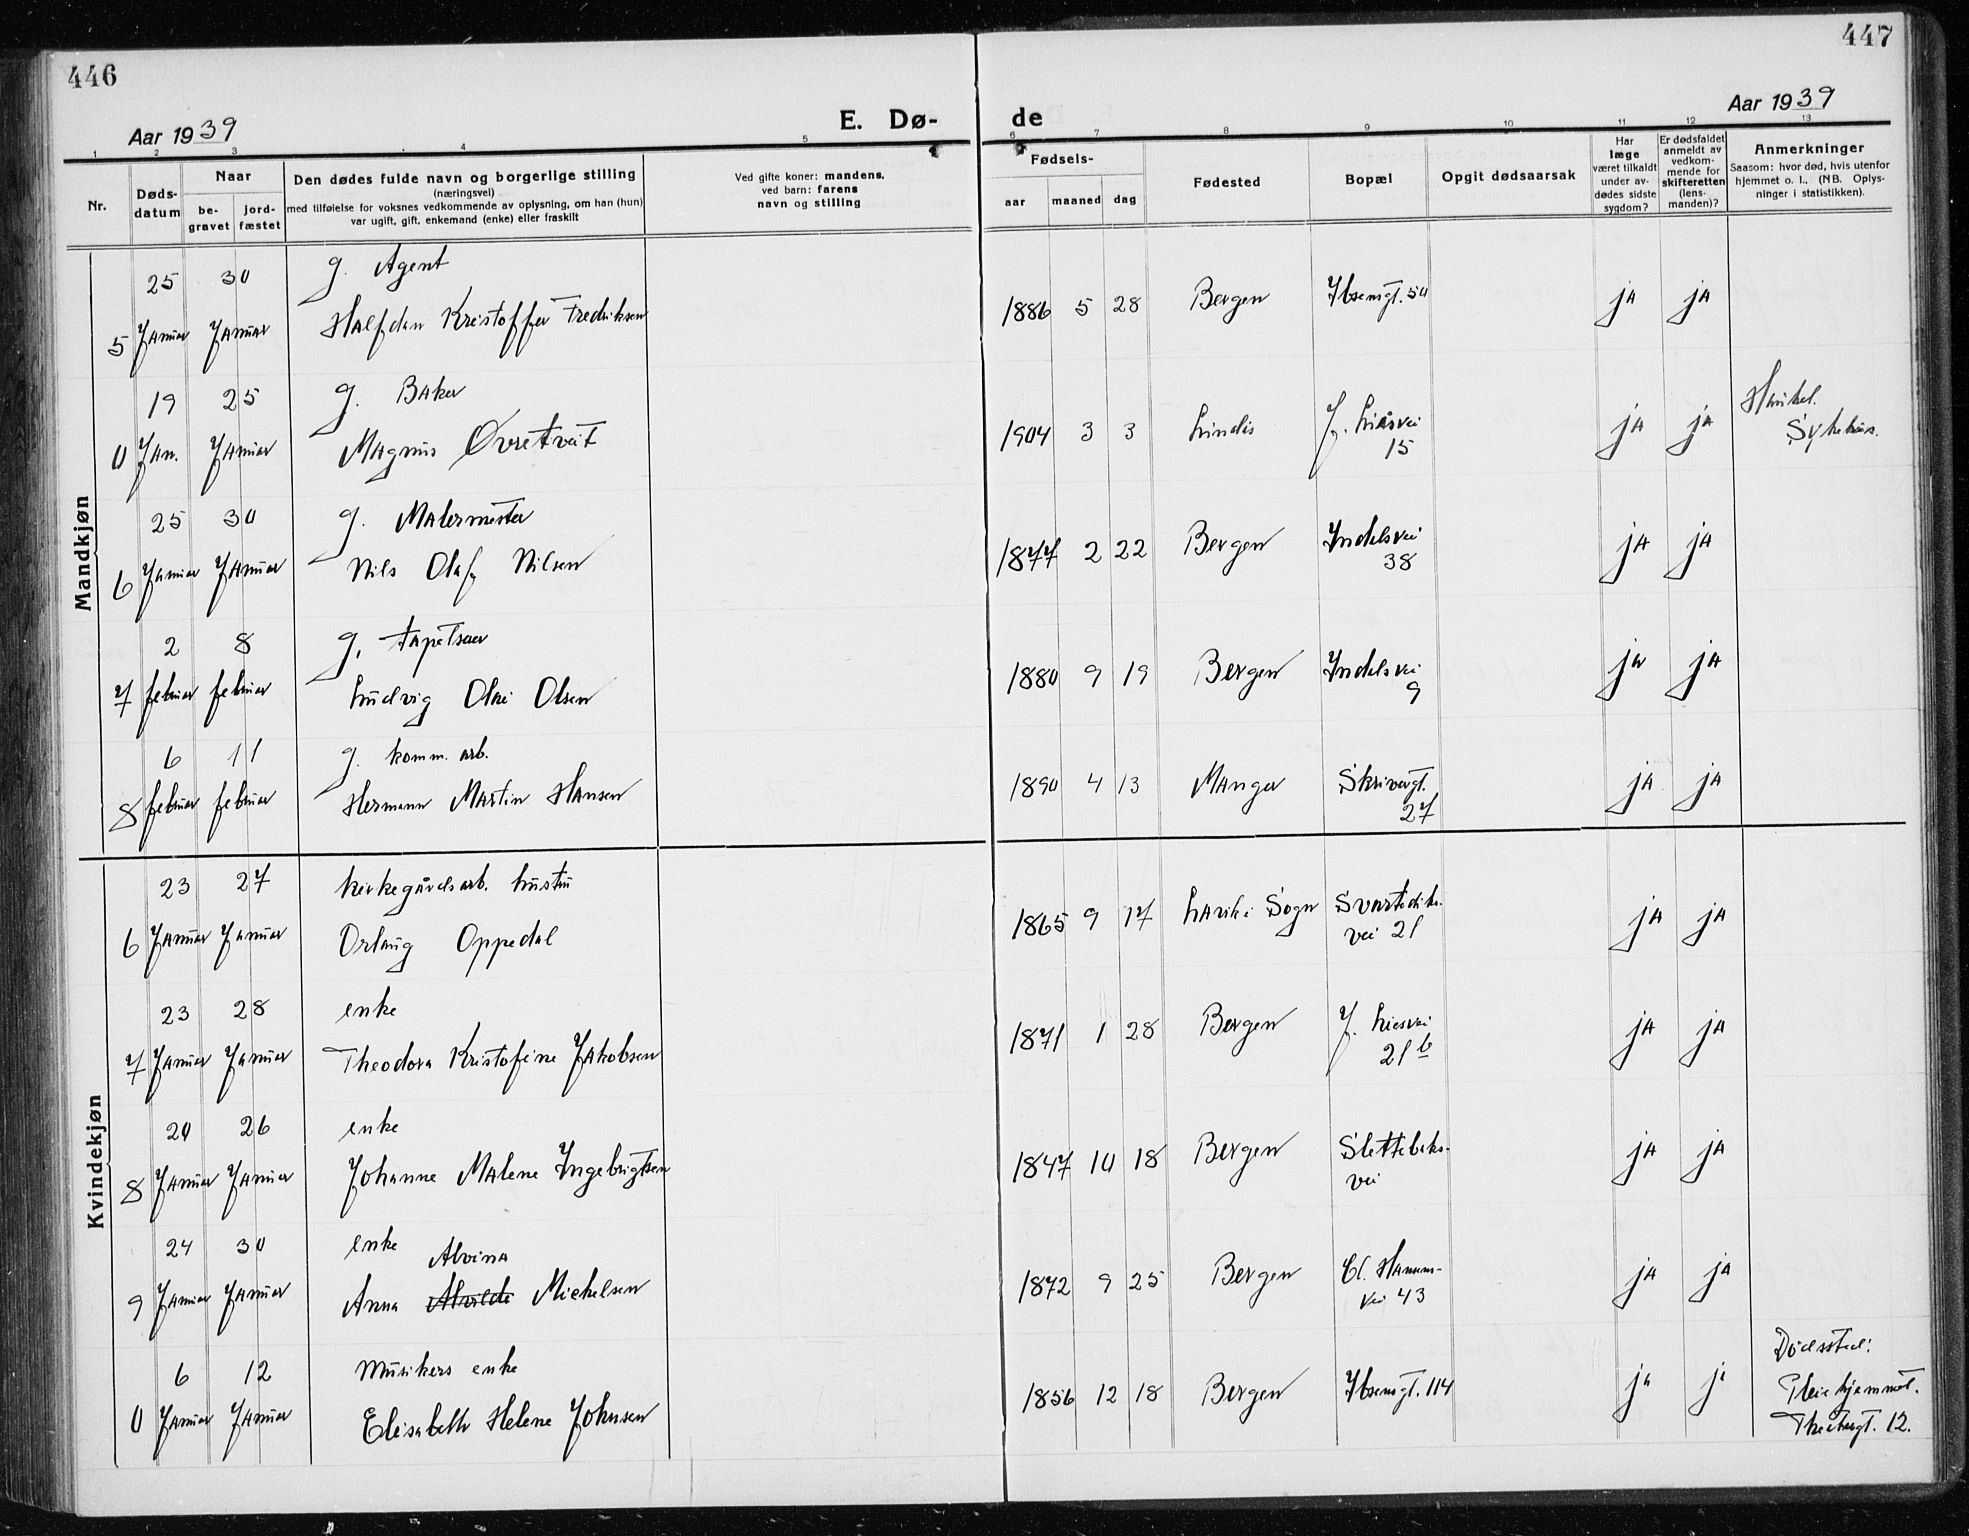 446
447
Aar 1939
E. Dø- de
Aar 1939
1 2 3 4 5 6 7 8 9 10 11 12 13
Nr.
Døds-
datum
Naar
be-
gravet
jord-
fæstet
Den dødes fulde navn og borgerlige stilling
(næringsvei)
med tilføielse for voksnes vedkommende av oplysning, om han (hun)
var ugift, gift, enkemand (enke) eller fraskilt
Ved gifte koner: mandens,
ved barn: farens
navn og stilling
Fødsels-
aar maaned dag
Fødested
Bopæl
Opgit dødsaarsak
Har
læge
været tilkaldt
under av-
dødes sidste
sygdom?
Er dødsfaldet
anmeldt av
vedkom-
mende for
skifteretten
(lens-
manden)?
Anmerkninger
Saasom: hvor død, hvis utenfor
hjemmet o. l., (NB. Oplys-
ninger i statistikken).
Mandkjøn
25 30 g. Agent
5 Januar Januar Halfdan Kristoffer Fredriksen 1886 5 28 Bergen Ibsensgt. 50 ja ja
19 25 g. Baker
0 Jan. Januar Magnus Øvretveit 1904 3 3 Lindås J. Liesvei
15 ja ja
Haukel.
Sykehus.
25 30 g. Malermester
6 Januar Januar Nils Olaf Nilsen 1877 2 22 Bergen Indalsvei
38 ja ja
2 8 g. tapetserer
7 februar februar Ludvig Olai Olsen 1880 9 19 Bergen Indalsvei
9 ja ja
6 11 g. komm. arb.
8 februar februar Hermann Martin Hansen 1890 4 13 Manger Skrivergt.
27 ja ja
Kvindekjøn
23 27 kirkegårdsarb. hustru
6 Januar Januar Orlaug Oppedal 1865 9 17 Lavik i Sogn Svartediks-
vei 21 ja ja
23 28 enke
7 Januar Januar Theodora Kristofine Jakobsen 1871 1 28 Bergen J. Liesvei
21 b ja ja
20 26 enke
8 Januar Januar Johanne Malene Ingebrigtsen 1847 10 18 Bergen Slettebaks-
vei ja ja
24 30 enke Alvina
9 Januar Januar Anna Alvilde Michelsen 1872 9 25 Bergen Cl. Hanssens-
vei 43 ja ja
6 12 Musikers enke
0 Januar Januar Elisabeth Helene Johnsen 1856 12 18 Bergen Ibsensgt. 114 ja ja
Dødssted:
Pleiehjemmet.
12.